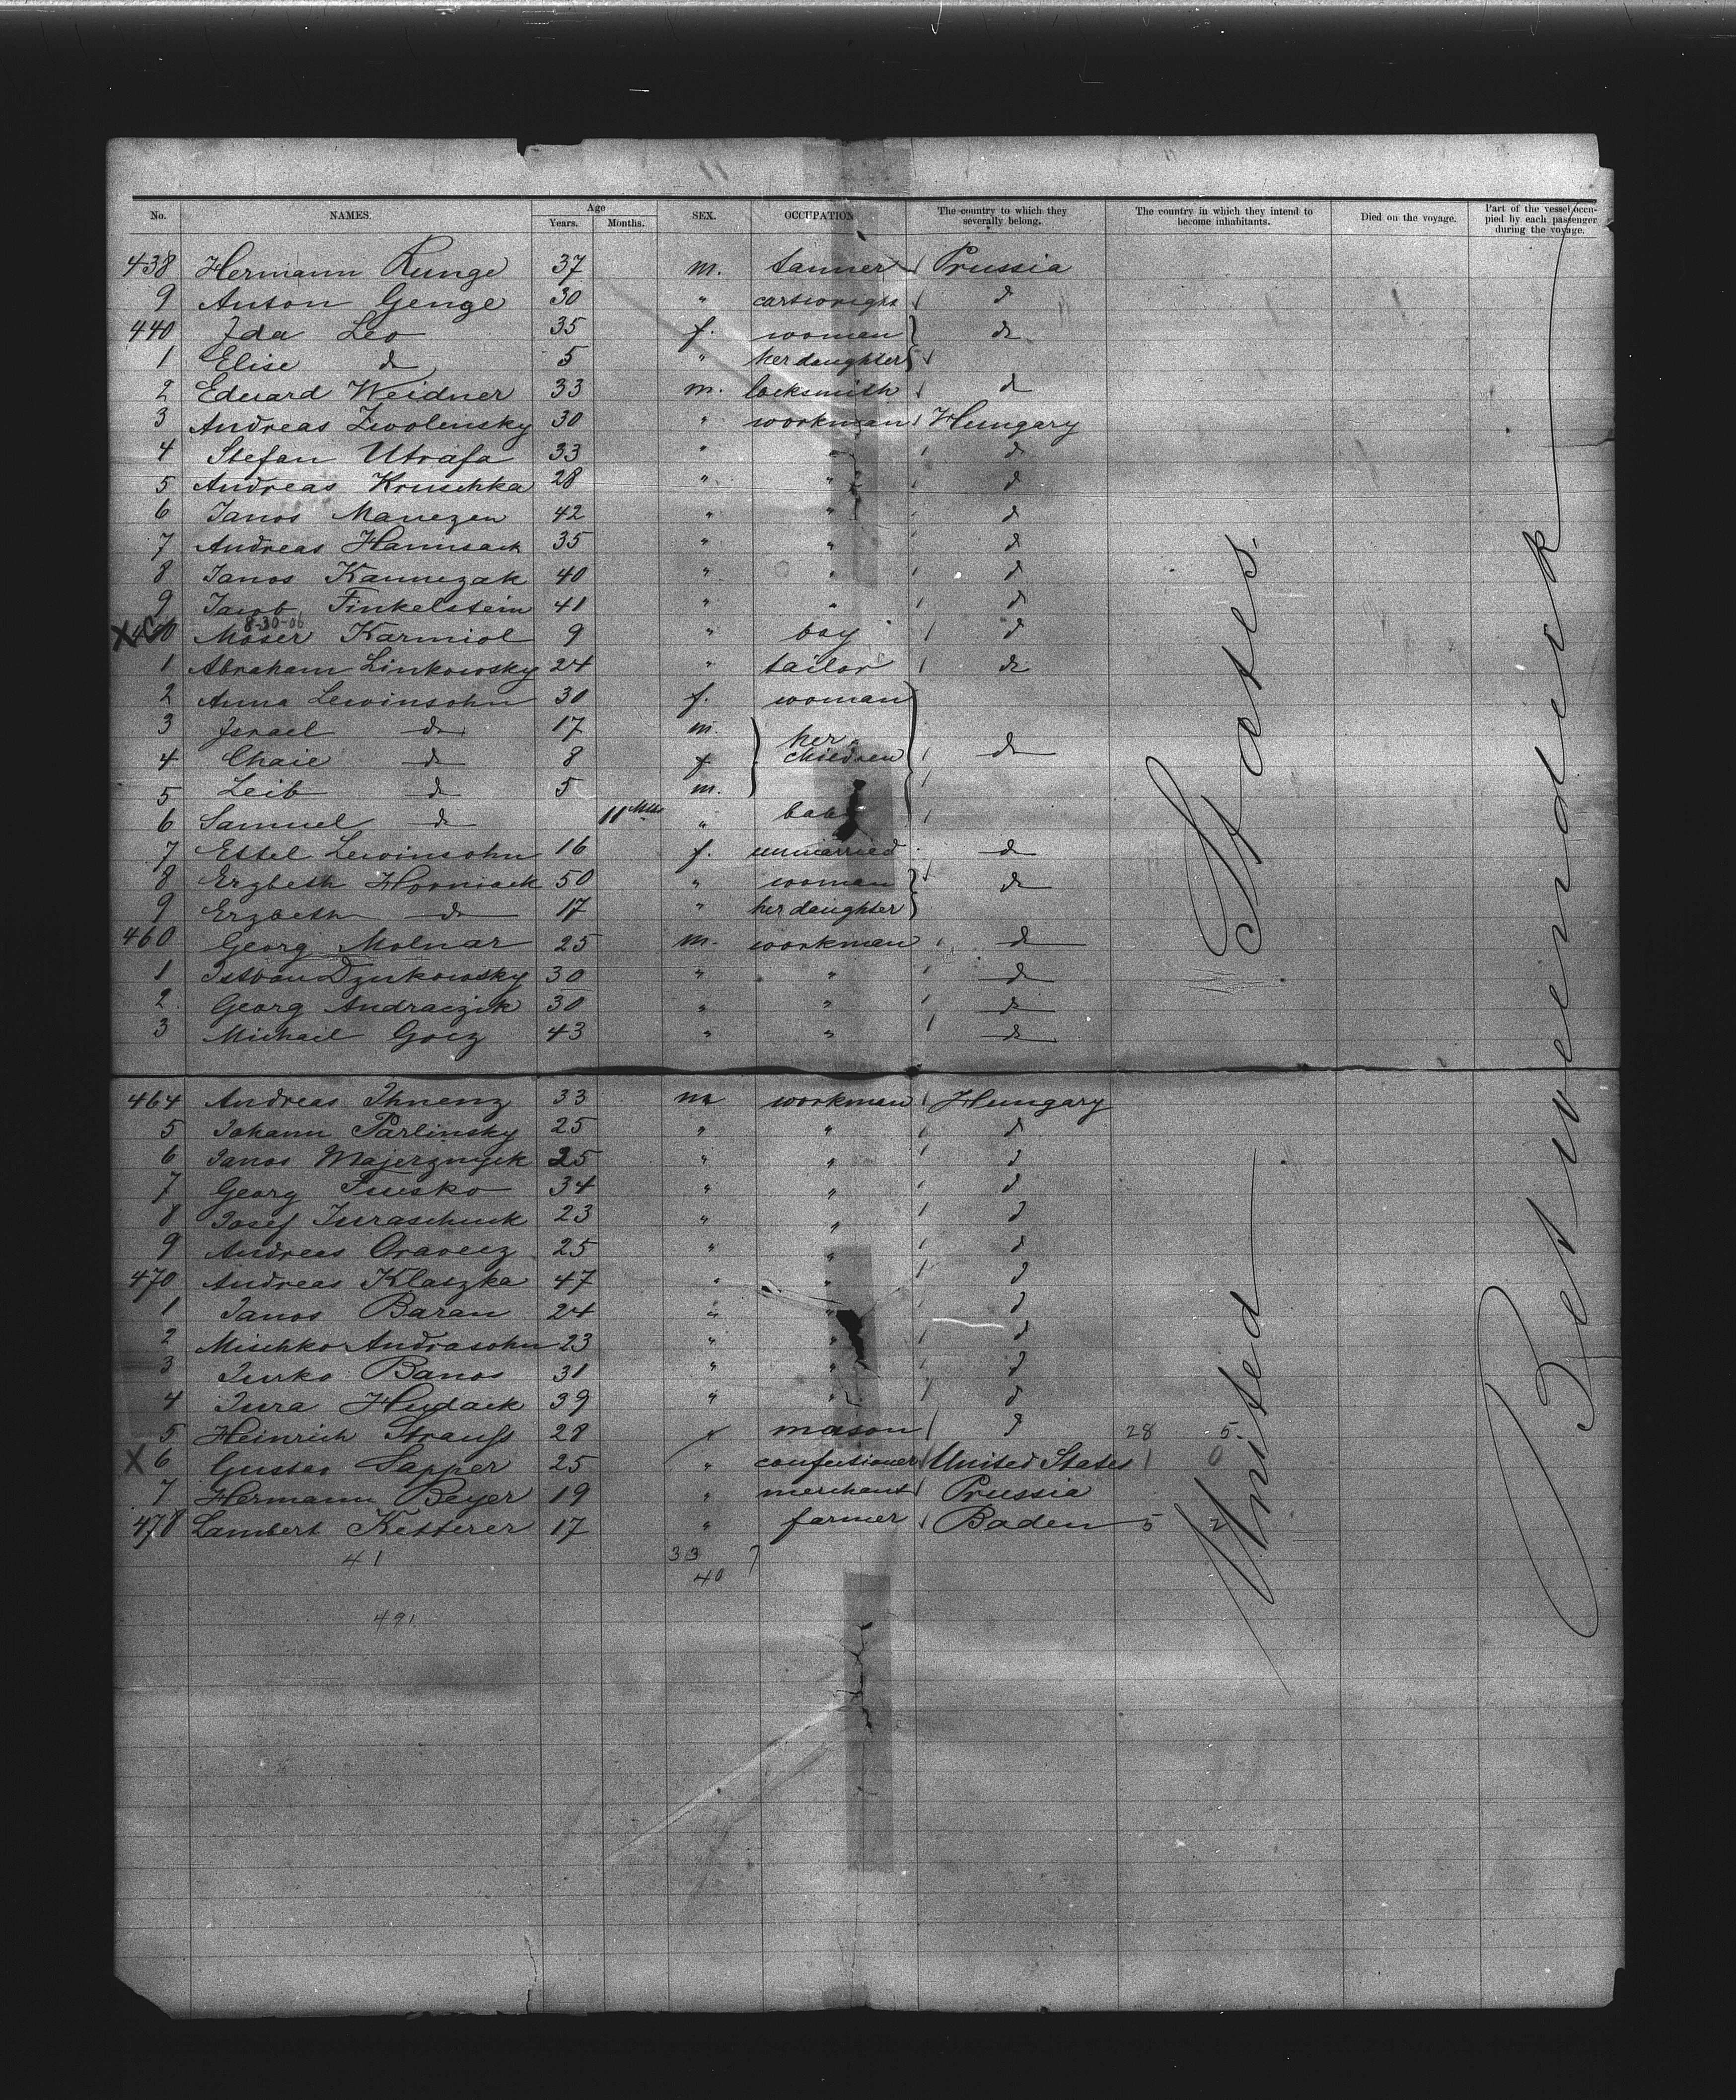 No. NAMES. Age Years. Months. SEX. OCCUPATION The country to which they severally belong. The country in which they intend to become inhabitants. Died on the voyage. Part of the vessel occupied by each passenger during the voyage.
438 Hermann Runge 37 m. tanner Prussia
9 Anton Genge 30 " cartwright d
440 Ida Leo 35 f. women do
1 Elise do 5 " her daughter
2 Eduard Weidner 33 m. locksmith d
3 Andreas Zwolensky 30 " workman Hungary
4 Stefan Utrafa 33 " " d
5 Andreas Kruschka 28 " " d
6 Janos Manezen 42 " " d
7 Andreas Hannsack 35 " " d
8 Janos Kannezak 40 " " d
9 Jacob Finkelstein 41 " " d
8-30-06
X 450 Moser Karmiol 9 " boy d
1 Abraham Linkowsky 24 " tailor do
2 Anna Lewinsohn 30 f. woman
3 Israel do 17 m. her
4 Chaie do 8 f children do
5 Leib do 5 m.
6 Samuel do 11 Mths " baby
7 Ettel Lewinsohn 16 f. unmarried do
8 Erzbeth Horniack 50 " woman do
9 Erzbeth do 17 " her daughter
460 Georg Molnar 25 m. workmen do
1 Istvan Dzurkowsky 30 " " do
2 Georg Andraczik 30 " " do
3 Michael Gocz 43 " " do
464 Andreas Ihnenz 33 m workman Hungary
5 Johann Parlinsky 25 " " d
6 Janos Majerznyik 25 " " d
7 Georg Fuesko 34 " " d
8 Josef Juraschuk 23 " " d
9 Andreas Oravecz 25 " " d
470 Andreas Klaszka 47 " " d
1 Janos Baran 24 " " d
2 Mischko Andrasohn 23 " " d
3 Jurko Banos 31 " " d
4 Jura Hudack 39 " " d
5 Heinrich Strauß 28 " mason d 28 5.
X 6 Gustav Sapper 25 " confectioner United States 1 0
7 Hermann Beyer 19 " merchant Prussia
478 Lambert Ketterer 17 " farmer Baden 5 2
41 33 7
40
491
United States.
Betweendeck